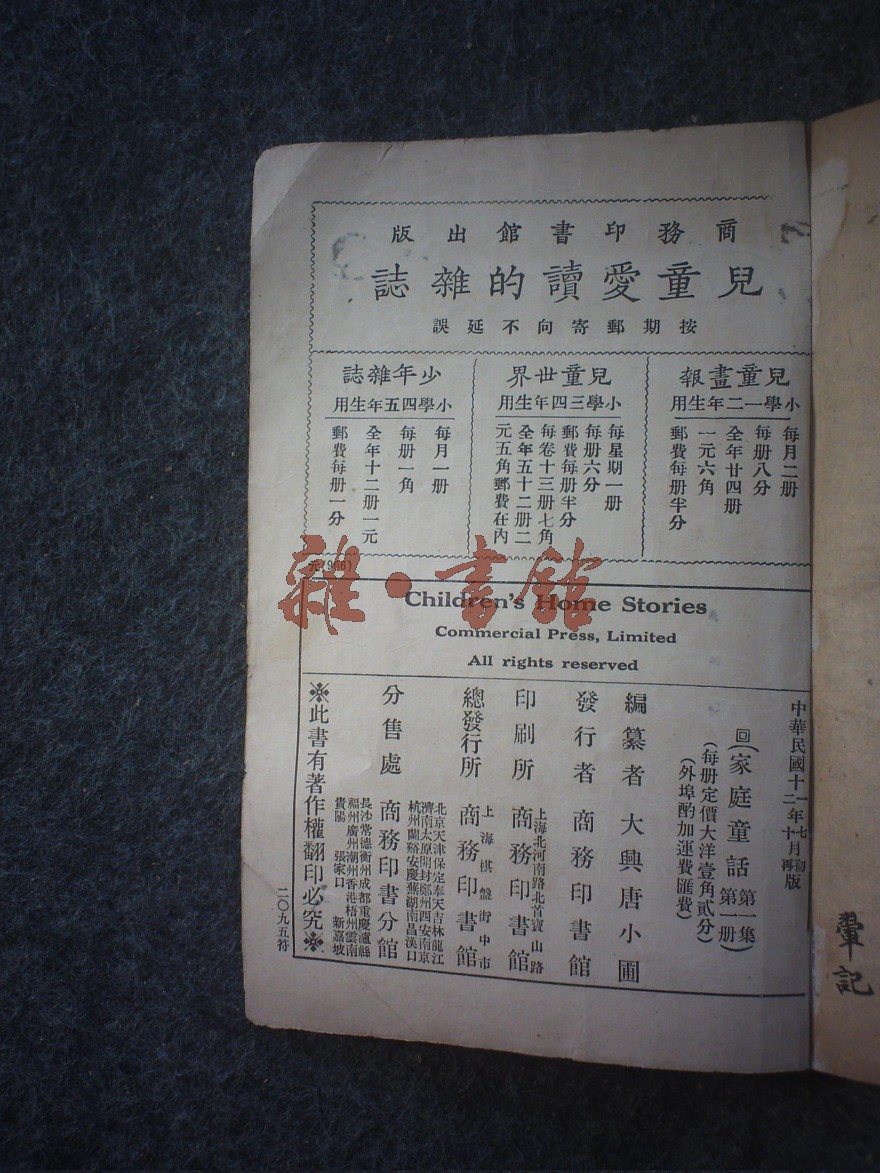 商務印書館出版
兒童愛讀的雜誌
按期郵寄向不延誤
兒童畫報
小學一二年生用
每月二册
每册八分
全年廿四册
一元六角
郵費每册半分
兒童世界
小學三四年生用
每星期一册
每册六分
郵費每册半分
每卷十三册七角
全年五十二册二
元五角郵費在內
少年雜誌
小學四五年生用
每月一册
每册一角
全年十二册一元
郵費每册一分
元(966)
Children's Home Stories
Commercial Press, Limited
All rights reserved
中華民國十一年七月初版
十二年十月再版
回(家庭童話第一集第一册)
(每册定價大洋壹角貳分)
(外埠酌加運費匯費)
編纂者 大興唐小圃
發行者 商務印書館
印刷所 上海北河南路北首寶山路 商務印書館
總發行所 上海棋盤街中市 商務印書館
分售處 商務印書分館
北京天津保定奉天吉林龍江
濟南太原開封鄭州西安南京
杭州蘭谿安慶蕪湖南昌漢口
長沙常德衡州成都重慶瀘縣
福州廣州潮州香港梧州雲南
貴陽 張家口 新嘉坡
※此書有著作權翻印必究※
二〇九五符
雜·書館
記